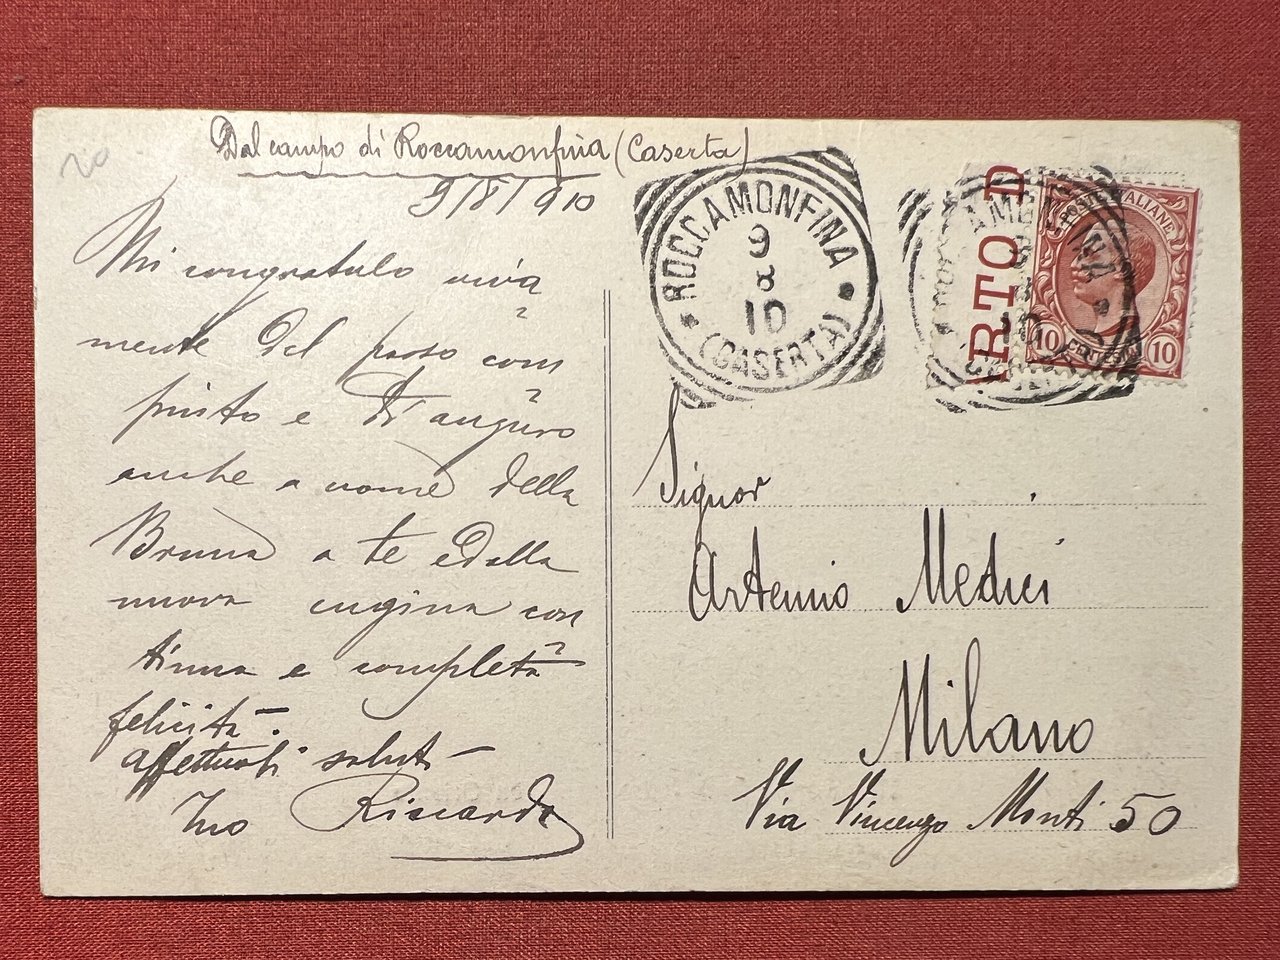 20
Dal campo di Roccamonfina (Caserta)
9/8/910
Mi congratulo viva
mente del passo com
piuto e ti auguro
anche a nome della
Bruna a te e della
nuova cugina con
tinua e completa
felicità -
affettuosi saluti -
Tuo Riccardo
ROCCAMONFINA
9
8
10
(CASERTA)
RTO D
POSTE ITALIANE
10 CENTESIMI 10
Signor
Artemio Medici
Milano
Via Vincenzo Monti 50